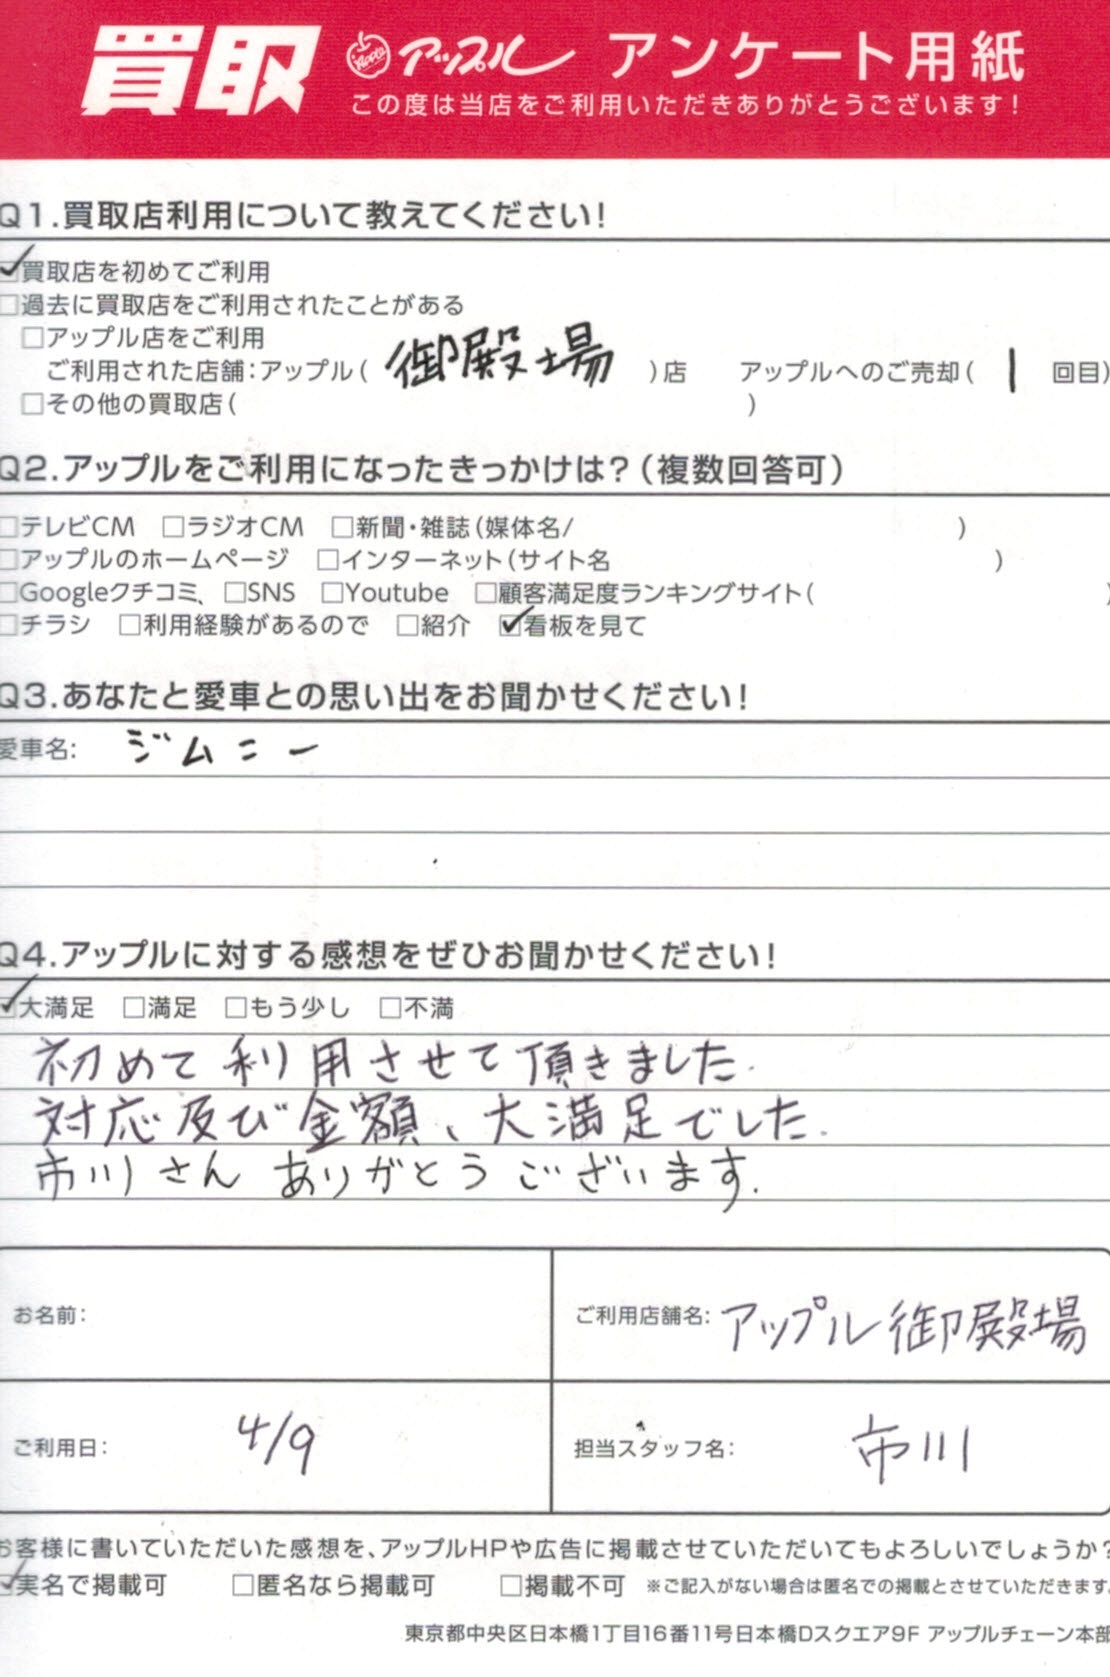 買取 Apple アップル アンケート用紙
この度は当店をご利用いただきありがとうございます!
Q1.買取店利用について教えてください!
☑買取店を初めてご利用
□過去に買取店をご利用されたことがある
□アップル店をご利用
ご利用された店舗:アップル( 御殿場 )店 アップルへのご売却( 1 回目)
□その他の買取店( )
Q2.アップルをご利用になったきっかけは?(複数回答可)
□テレビCM □ラジオCM □新聞・雑誌(媒体名/ )
□アップルのホームページ □インターネット(サイト名 )
□Googleクチコミ、□SNS □Youtube □顧客満足度ランキングサイト( )
□チラシ □利用経験があるので □紹介 ☑看板を見て
Q3.あなたと愛車との思い出をお聞かせください!
愛車名: ジムニー
Q4.アップルに対する感想をぜひお聞かせください!
☑大満足 □満足 □もう少し □不満
初めて利用させて頂きました.
対応及び金額、大満足でした.
市川さん ありがとうございます.
お名前: ご利用店舗名: アップル御殿場
ご利用日: 4/9 担当スタッフ名: 市川
お客様に書いていただいた感想を、アップルHPや広告に掲載させていただいてもよろしいでしょうか?
☑実名で掲載可 □匿名なら掲載可 □掲載不可 ※ご記入がない場合は匿名での掲載とさせていただきます。
東京都中央区日本橋1丁目16番11号日本橋Dスクエア9F アップルチェーン本部